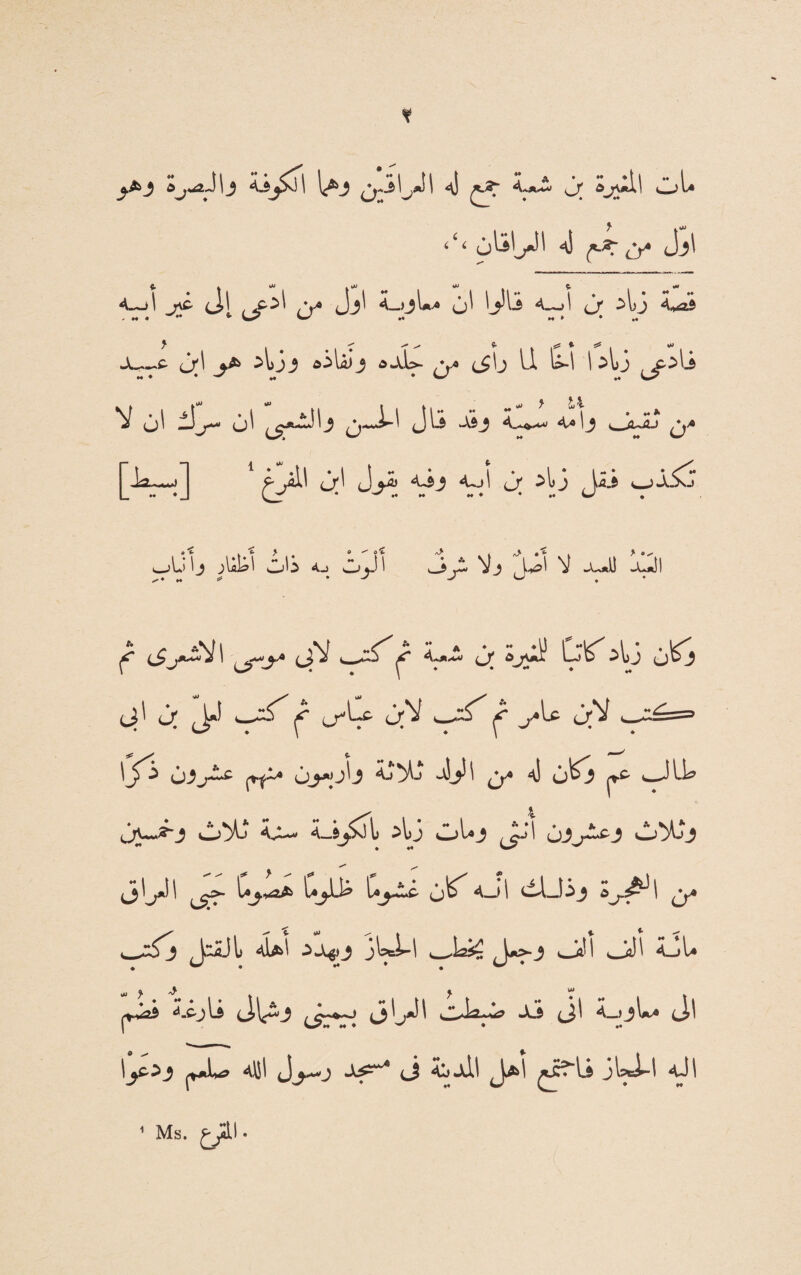 ٢
مات المغيرة بن شعبة جمع له العراقين وهما الكوفة والبصرة وهو
اوّل من جُمع له العراقان ،',
قصّة زياد بن أبيه قالوا انّ معاوية اوّل من ادّعى إلى غير أبيه
فادّعى زيادًا أخًا لمّا رأى من جلده ونفاذه وزياد هو ابن عُبيد
من ثقيف وأمّه سُميّة وقد قال الحسن والشعبىّ ان سرّك ان لا
تكذب فقل زياد بن أبيه وفيه يقول ابن المفرّغ ¹ [بسيط]
العَبْدُ للعبد لا أَصْلٌ ولا شرفٌ أَلْوَتْ به ذاتُ أَظفارٍ وأَنيابِ
وكان زياد كاتبًا للمغيرة بن شعبة ثم كتب لأبى موسى الأشعرى ثم
كتب لابن عامر ثم كتب لابن عبّاس ثم كتب لعلىّ بن ابى
طالب عَم وكان له من الولد ثلاثة وأربعون منهم عشرون ذكرًا
وثلاث وعشرون أنثى ومات زياد بالكوفة سنة ثلاث وخمسين
من الهجرة وذلك انّه كان غَشومًا ظلومًا هَضُومًا جَبَى العراق
مائة ألف ألف وجعل يخطب الحجاز ويهدّد أهلَه بالقتل وكتب
الى معاوية انّى قد ضبطتُ العراق بيمينى وشمالى فارغةٌ فضُمّ
اليه الحجاز فاجتمع أهل المدينة فى مسجد رسول الله صلعم ودعَوْا
¹ Ms. المقرع.